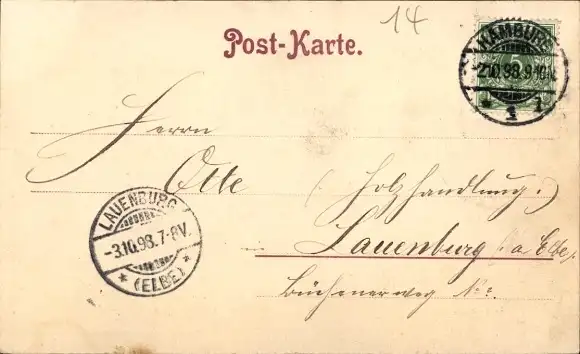 14
Post-Karte.
HAMBURG
-2.10.98.9-10N.
* 1 1
Herrn
Otte (Holzhandlung.)
LAUENBURG
-3.10.98.7-8V.
* (ELBE) *
Lauenburg a/Elbe,
Büchenerweg No.